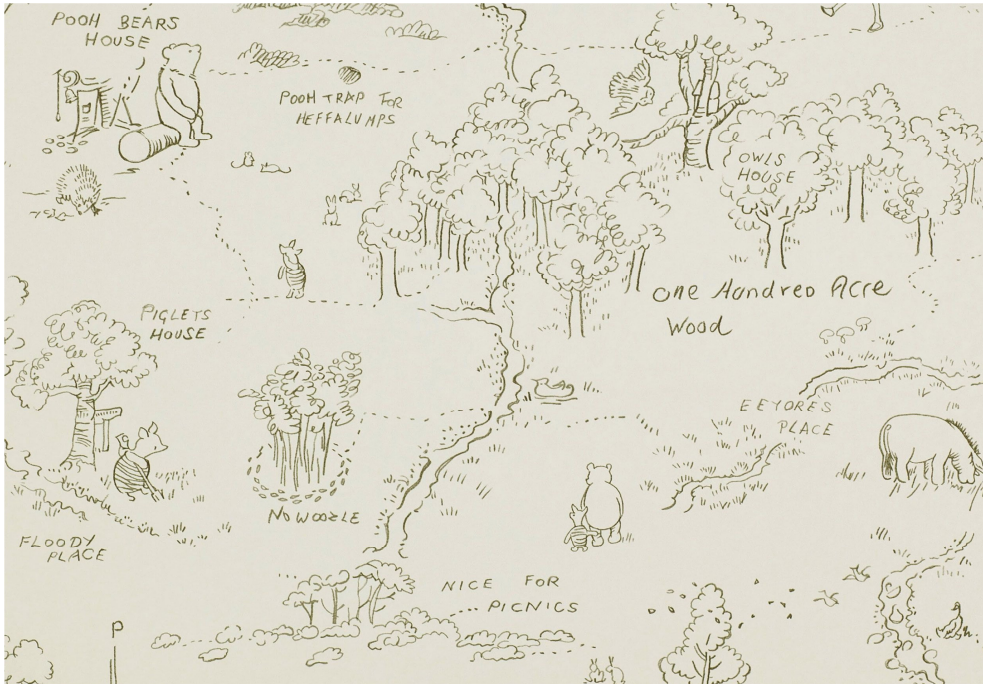 POOH BEARS
HOUSE
POOH TRAP FOR
HEFFALUMPS
OWLS
HOUSE
One Hundred Acre
Wood
PIGLETS
HOUSE
EEYORES
PLACE
NO WOOZLE
FLOODY
PLACE
NICE FOR
PICNICS
P